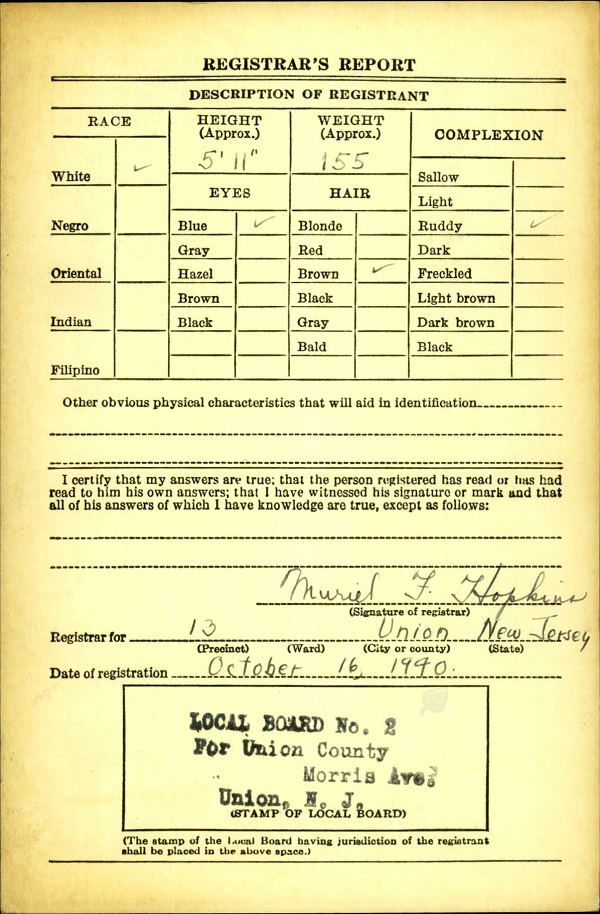 REGISTRAR'S REPORT
DESCRIPTION OF REGISTRANT
RACE
HEIGHT
(Approx.)
WEIGHT
(Approx.)
COMPLEXION
5' 11"
155
White ✓
Sallow
EYES
HAIR
Light
Negro
Blue ✓
Blonde
Ruddy ✓
Gray
Red
Dark
Oriental
Hazel
Brown ✓
Freckled
Brown
Black
Light brown
Indian
Black
Gray
Dark brown
Bald
Black
Filipino
Other obvious physical characteristics that will aid in identification
I certify that my answers are true; that the person registered has read or has had
read to him his own answers; that I have witnessed his signature or mark and that
all of his answers of which I have knowledge are true, except as follows:
Muriel F. Hopkins
(Signature of registrar)
Registrar for 13 Union New Jersey
(Precinct) (Ward) (City or county) (State)
Date of registration October 16, 1940.
LOCAL BOARD No. 2
For Union County
Morris Ave.
Union, N. J.
(STAMP OF LOCAL BOARD)
(The stamp of the Local Board having jurisdiction of the registrant
shall be placed in the above space.)